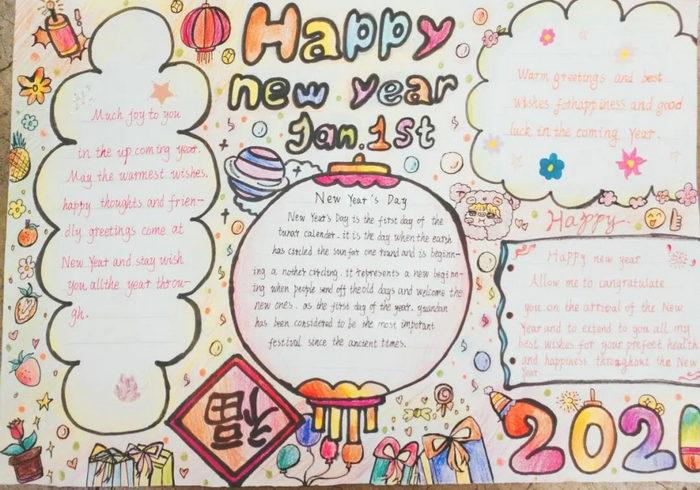 Happy
new year
Jan. 1st
Much joy to you
in the up coming year.
May the warmest wishes,
happy thoughts and frien-
dly greetings come at
New Year and stay wish
you all the year throu-
gh.
New Year's Day
New Year's Day is the first day of the
lunar calender. it is the day when the earth
has circled the sun for one round and is beginn-
ing a nother circling. it represents a new begi nn-
ing when people send off the old days and welcome the
new ones. as the first day of the year. yuandan
has been considered to be the most important
festival since the ancient times.
福
Warm greetings and best
wishes for happiness and good
luck in the coming year.
Happy
Happy new year
Allow me to congratulate
you on the arrival of the New
Year and to extend to you all my
best wishes for your prefect health
and happiness throughout the New
Year
202